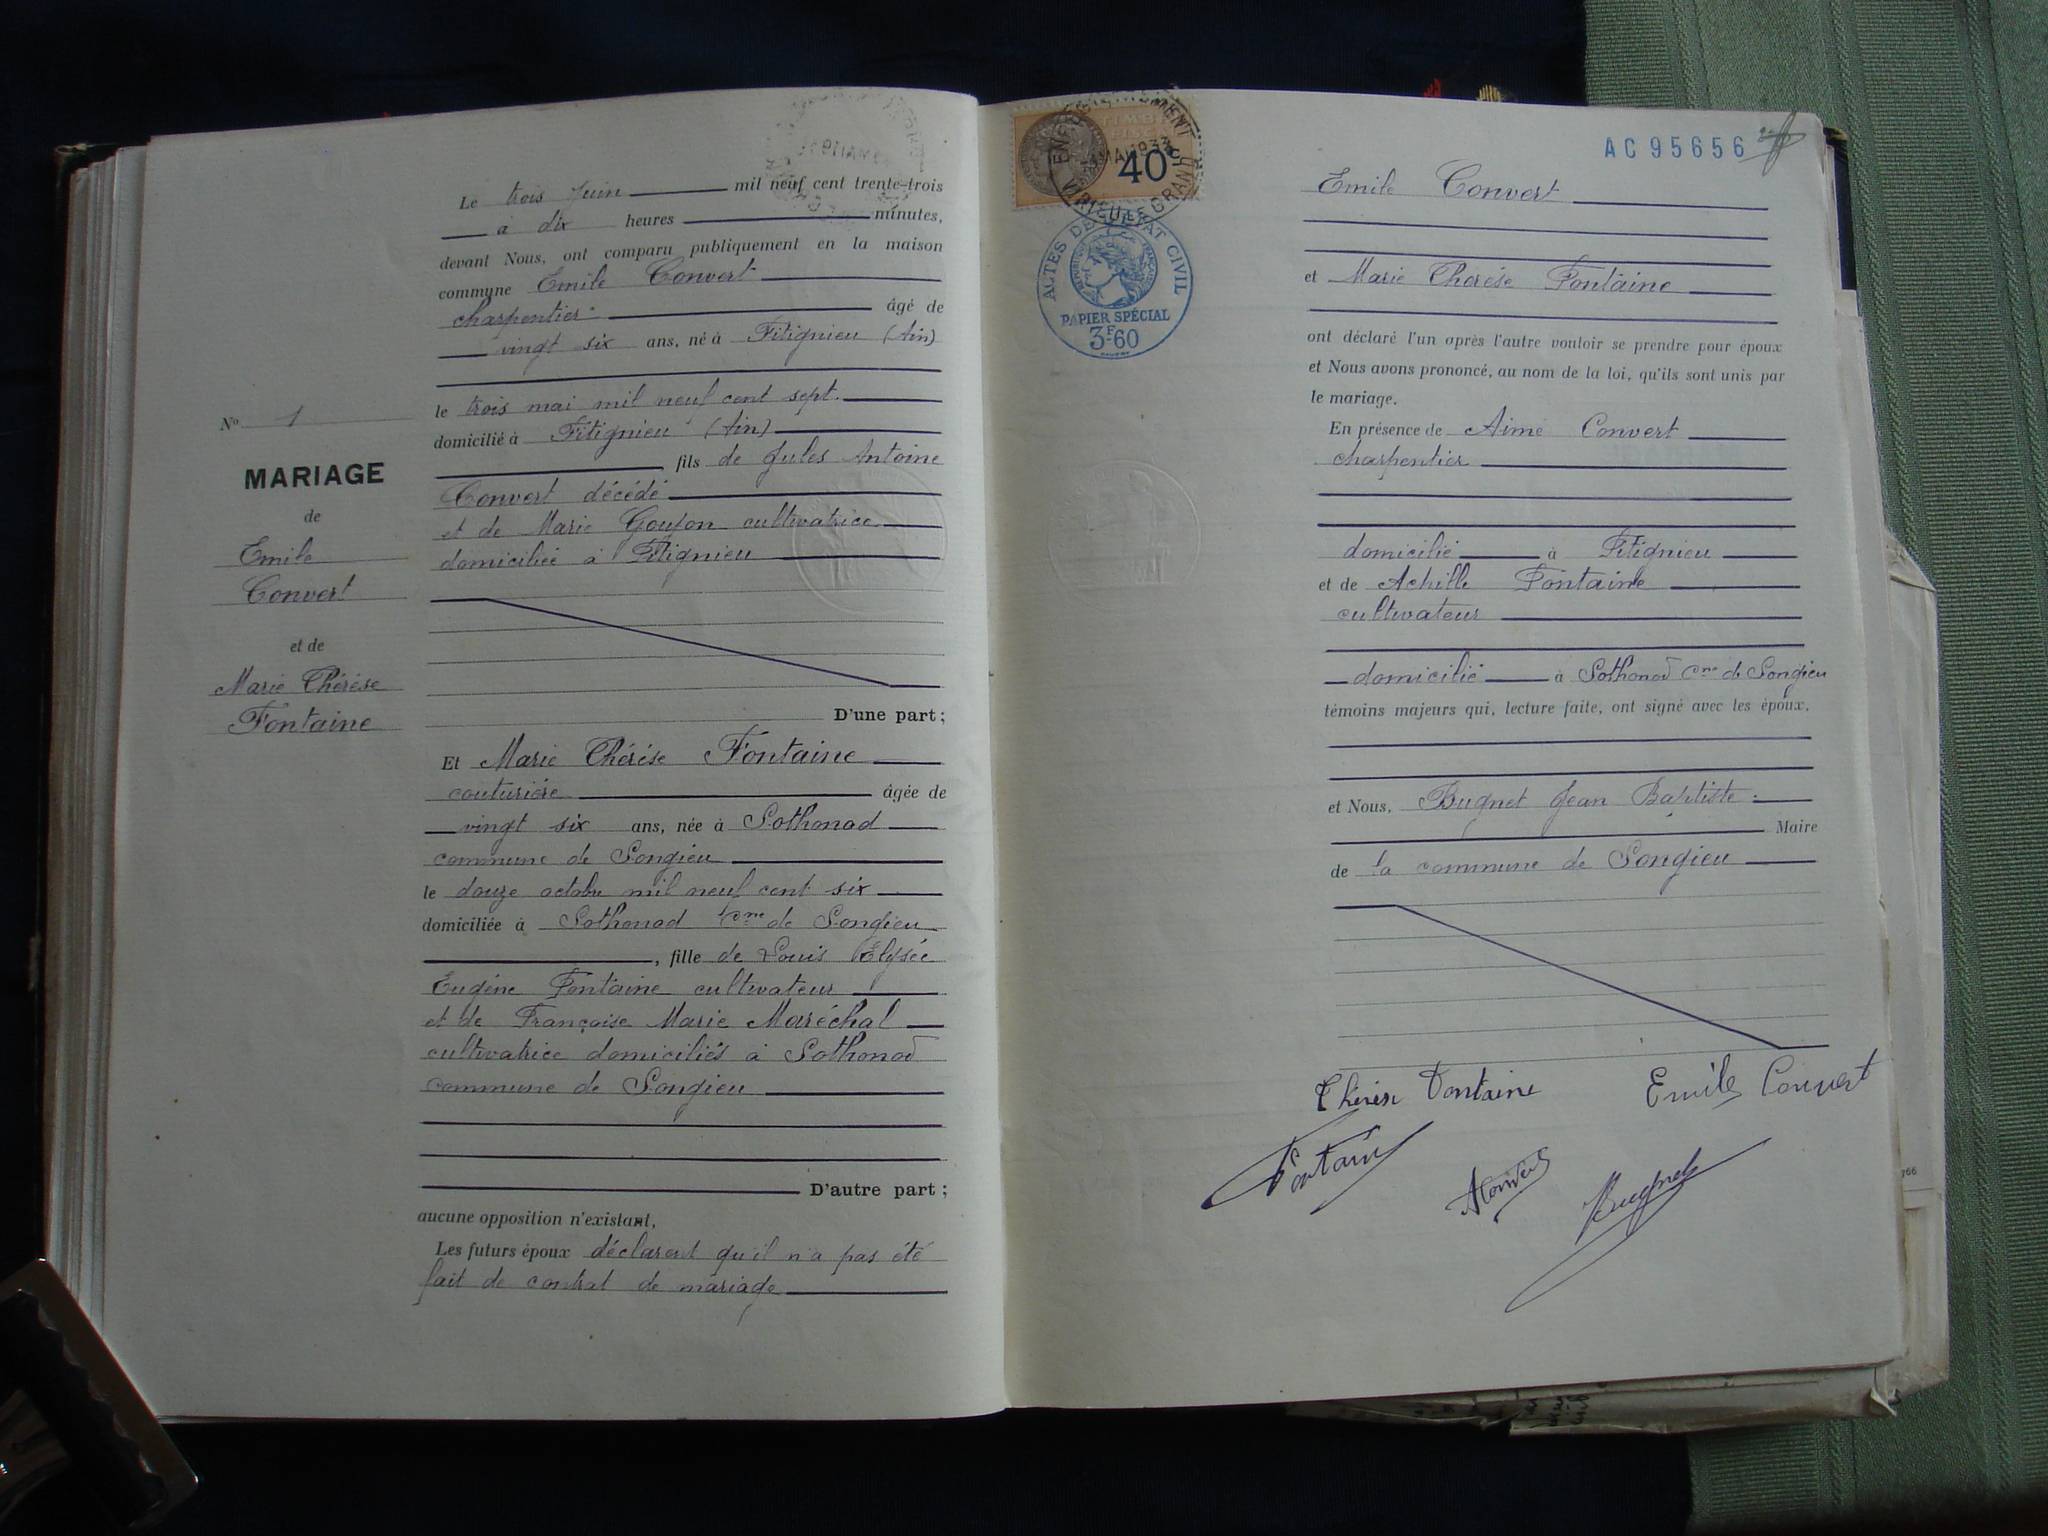 Le trois Juin mil neuf cent trente-trois
à dix heures minutes,
devant Nous, ont comparu publiquement en la maison
commune Emile Convert
charpentier âgé de
vingt six ans, né à Fitignieu (Ain)
le trois mai mil neuf cent sept.
domicilié à Fitignieu (Ain)
fils de Jules Antoine
Convert décédé
et de Marie Goujon cultivatrice
domiciliée à Fitignieu
D'une part;
Et Marie Thérèse Fontaine
couturière âgée de
vingt six ans, née à Sothonod
commune de Songieu
le douze octobre mil neuf cent six
domiciliée à Sothonod Cne de Songieu
, fille de Louis Elysée
Eugène Fontaine cultivateur
et de Françoise Marie Maréchal
cultivatrice domiciliés à Sothonod
commune de Songieu
D'autre part;
aucune opposition n'existant,
Les futurs époux déclarent qu'il n'a pas été
fait de contrat de mariage
No 1
MARIAGE
de
Emile
Convert
et de
Marie Thérèse
Fontaine
TIMBRE
FISCAL
40c
ENREGISTREMENT
MAI 1933
VIRIEU-LE-GRAND
ACTES DE L'ÉTAT CIVIL
PAPIER SPÉCIAL
3F60
AC 95656
Emile Convert
et Marie Thérèse Fontaine
ont déclaré l'un après l'autre vouloir se prendre pour époux
et Nous avons prononcé, au nom de la loi, qu'ils sont unis par
le mariage.
En présence de Aimé Convert
charpentier
domicilié à Fitignieu
et de Achille Fontaine
cultivateur
domicilié à Sothonod Cne de Songieu
témoins majeurs qui, lecture faite, ont signé avec les époux,
et Nous, Bugnet Jean Baptiste
Maire
de la commune de Songieu
Thérèse Fontaine Emile Convert
Fontaine AConvert Bugnet
766